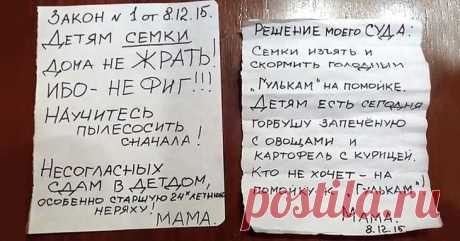 ЗАКОН №1 ОТ 8.12.15.
ДЕТЯМ СЕМКИ
ДОМА НЕ ЖРАТЬ!
ИБО - НЕ ФИГ!!!
НАУЧИТЕСЬ
ПЫЛЕСОСИТЬ
СНАЧАЛА!
НЕСОГЛАСНЫХ
СДАМ В ДЕТДОМ,
ОСОБЕННО СТАРШУЮ 24Х ЛЕТНЮЮ
НЕРЯХУ!
МАМА.
РЕШЕНИЕ МОЕГО СУДА:
СЕМКИ ИЗЪЯТЬ И
СКОРМИТЬ ГОЛОДНЫМ
„ГУЛЬКАМ" НА ПОМОЙКЕ.
ДЕТЯМ ЕСТЬ СЕГОДНЯ
ГОРБУШУ ЗАПЕЧЁНУЮ
С ОВОЩАМИ И
КАРТОФЕЛЬ С КУРИЦЕЙ.
КТО НЕ ХОЧЕТ - НА
ПОМОЙКУ К „ГУЛЬКАМ"!
МАМА.
8.12.15
postila.ru